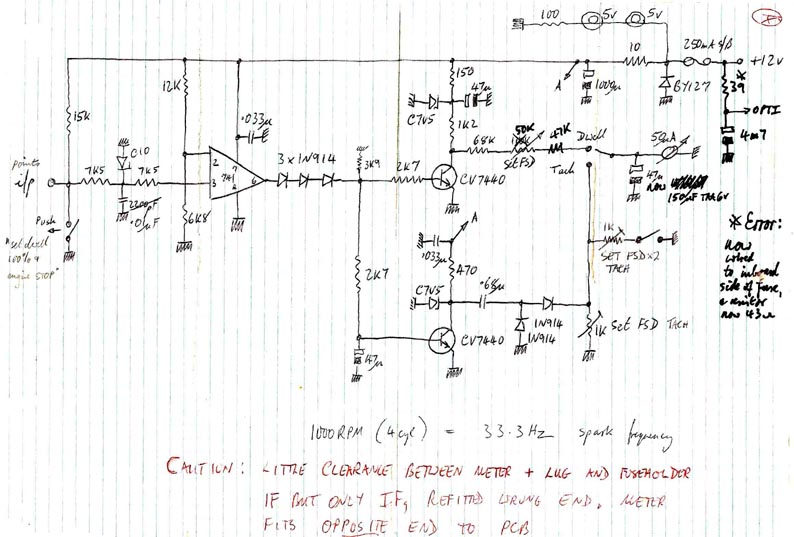 100
5v
5v
10
250mA S/B
+12v
150
47µ
A
1000µ
BY127
39
*
OPTI
4m7
12K
15K
.033µ
C7V5
1K2
68K
50K
47K
Dwell
50µA
Set FSD
Tach
47µ
NOW
150µF TAG 6v
points
i/p
7K5
C10
7K5
2200pF
.01µF
2
3
7
741
4
6
3 x 1N914
3K9
2K7
CV7440
6K8
Push
"set dwell
100% @
engine STOP"
A
.033µ
470
2K7
C7V5
.68µ
1N914
1N914
CV7440
47µ
1K
SET FSD x 2
TACH
1K Set FSD TACH
* Error:
now
wired
to inboard
side of fuse,
& resistor
now 43Ω
1000 RPM (4 cyl) = 33.3 Hz spark frequency
CAUTION: LITTLE CLEARANCE BETWEEN METER + LUG AND FUSEHOLDER
IF BUT ONLY IF, REFITTED WRONG END. METER
FITS OPPOSITE END TO PCB